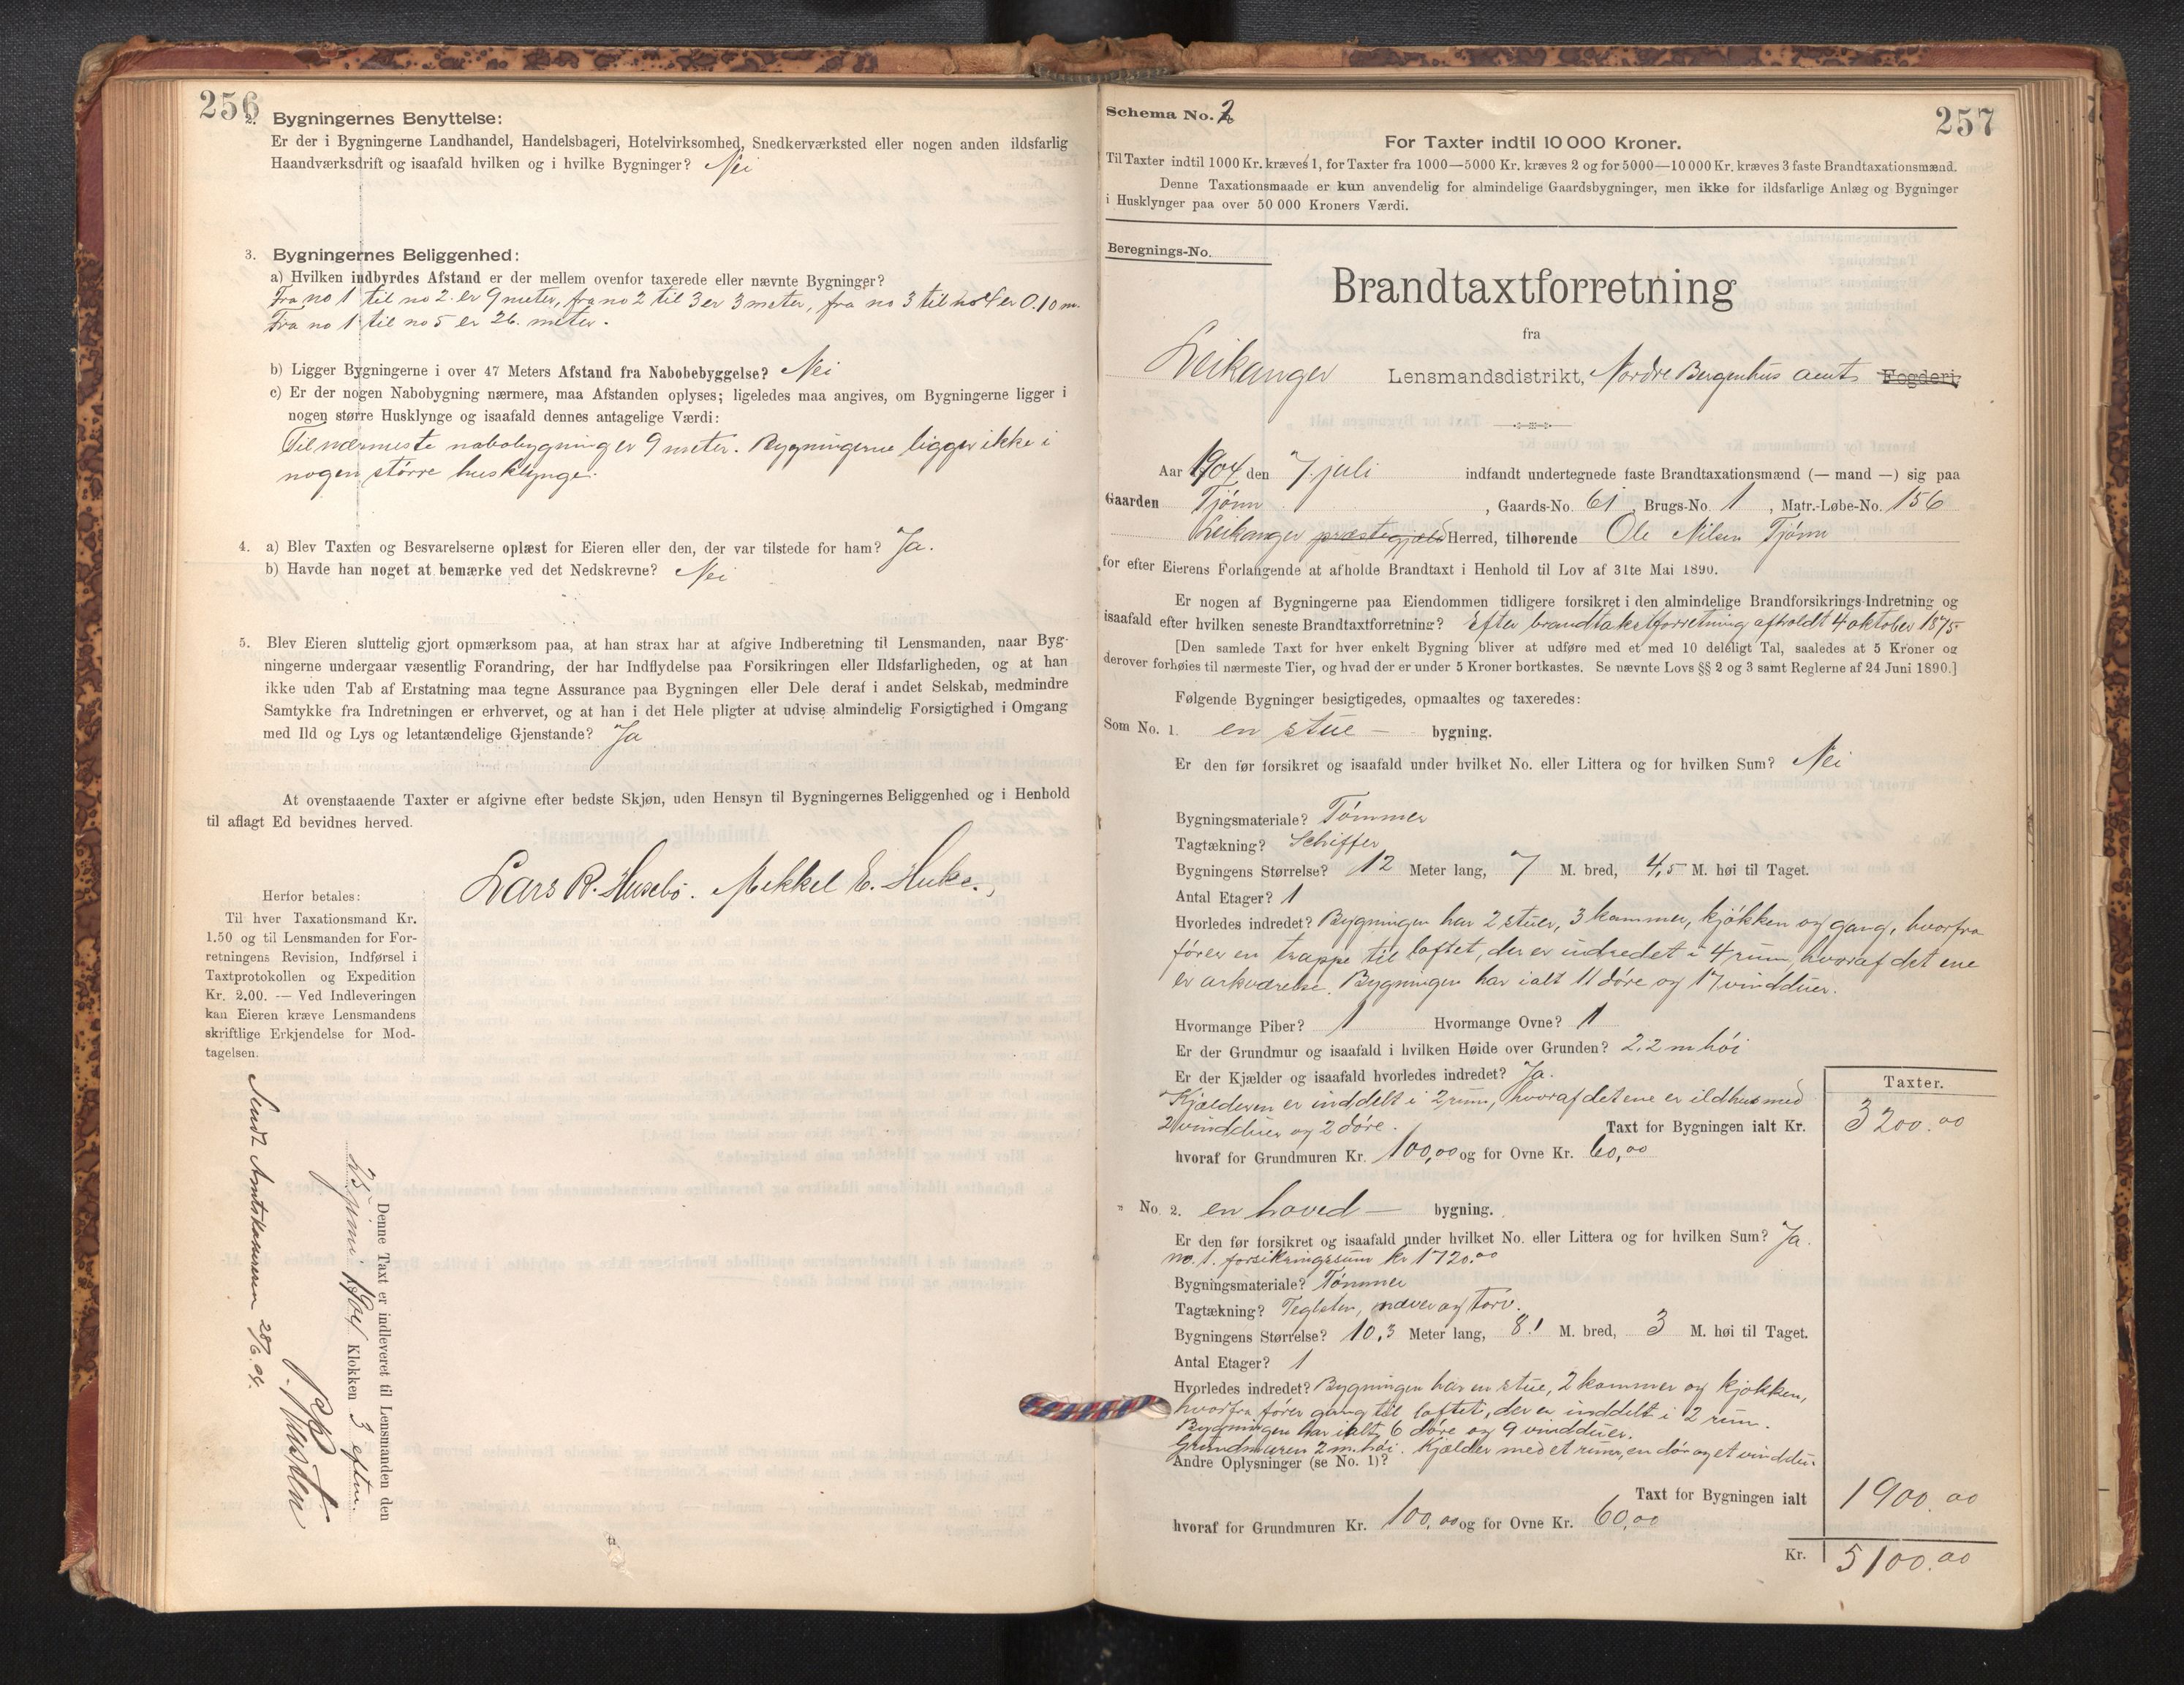 256
2. Bygningernes Benyttelse:
Er der i Bygningerne Landhandel, Handelsbageri, Hotelvirksomhed, Snedkerværksted eller nogen anden ildsfarlig
Haandværksdrift og isaafald hvilken og i hvilke Bygninger? Nei
3. Bygningernes Beliggenhed:
a) Hvilken indbyrdes Afstand er der mellem ovenfor taxerede eller nævnte Bygninger?
Fra no 1 til no 2 er 9 meter, fra no 2 til 3 er 3 meter, fra no 3 til no 4 er 0.10 m.
Fra no 1 til no 5 er 26. meter.
b) Ligger Bygningerne i over 47 Meters Afstand fra Nabobebyggelse? Nei
c) Er der nogen Nabobygning nærmere, maa Afstanden oplyses; ligeledes maa angives, om Bygningerne ligger i
nogen større Husklynge og isaafald dennes antagelige Værdi:
Til nærmeste nabobygning er 9 meter. Bygningerne ligger ikke i
nogen større husklynge.
4. a) Blev Taxten og Besvarelserne oplæst for Eieren eller den, der var tilstede for ham? Ja.
b) Havde han noget at bemærke ved det Nedskrevne? Nei
5. Blev Eieren sluttelig gjort opmærksom paa, at han strax har at afgive Indberetning til Lensmanden, naar Byg-
ningerne undergaar væsentlig Forandring, der har Indflydelse paa Forsikringen eller Ildsfarligheden, og at han
ikke uden Tab af Erstatning maa tegne Assurance paa Bygningen eller Dele deraf i andet Selskab, medmindre
Samtykke fra Indretningen er erhvervet, og at han i det Hele pligter at udvise almindelig Forsigtighed i Omgang
med Ild og Lys og letantændelige Gjenstande? Ja
At ovenstaaende Taxter er afgivne efter bedste Skjøn, uden Hensyn til Bygningernes Beliggenhed og i Henhold
til aflagt Ed bevidnes herved.
Lars R. Husebø. Mikkel E. Huke.
Herfor betales:
Til hver Taxationsmand Kr.
1.50 og til Lensmanden for For-
retningens Revision, Indførsel i
Taxtprotokollen og Expedition
Kr. 2.00. — Ved Indleveringen
kan Eieren kræve Lensmandens
skriftlige Erkjendelse for Mod-
tagelsen.
Denne Taxt er indleveret til Lensmanden den
25 juni 1904 Klokken 3 eftm.
Sendt Amtskassereren 28/6. 04.
257
Schema No. 2
For Taxter indtil 10 000 Kroner.
Til Taxter indtil 1000 Kr. kræves 1, for Taxter fra 1000—5000 Kr. kræves 2 og for 5000—10 000 Kr. kræves 3 faste Brandtaxationsmænd.
Denne Taxationsmaade er kun anvendelig for almindelige Gaardsbygninger, men ikke for ildsfarlige Anlæg og Bygninger
i Husklynger paa over 50 000 Kroners Værdi.
Beregnings-No.
Brandtaxtforretning
fra
Leikanger Lensmandsdistrikt, Nordre Bergenhus amts Fogderi.
Aar 1904 den 7. juli indfandt undertegnede faste Brandtaxationsmænd (— mand —) sig paa
Gaarden Tjønn, Gaards-No. 61, Brugs-No. 1, Matr.-Løbe-No. 156
Leikanger præstegjæld Herred, tilhørende Ole Nilsen Tjønn
for efter Eierens Forlangende at afholde Brandtaxt i Henhold til Lov af 31te Mai 1890.
Er nogen af Bygningerne paa Eiendommen tidligere forsikret i den almindelige Brandforsikrings-Indretning og
isaafald efter hvilken seneste Brandtaxtforretning? Efter brandtakstforretning afholdt 4 oktober 1875.
[Den samlede Taxt for hver enkelt Bygning bliver at udføre med et med 10 deleligt Tal, saaledes at 5 Kroner og
derover forhøies til nærmeste Tier, og hvad der er under 5 Kroner bortkastes. Se nævnte Lovs §§ 2 og 3 samt Reglerne af 24 Juni 1890.]
Følgende Bygninger besigtigedes, opmaaltes og taxeredes:
Som No. 1. en stue — bygning.
Er den før forsikret og isaafald under hvilket No. eller Littera og for hvilken Sum? Nei
Bygningsmateriale? Tømmer
Tagtækning? Schiffer
Bygningens Størrelse? 12 Meter lang, 7 M. bred, 4,5 M. høi til Taget.
Antal Etager? 1
Hvorledes indredet? Bygningen har 2 stuer, 3 kammer, kjøkken og gang, hvorfra
fører en trappe til loftet, der er indredet i 4 rum, hvoraf det ene
er arkværelse. Bygningen har ialt 11 døre og 17 vindduer.
Hvormange Piber? 1 Hvormange Ovne? 1
Er der Grundmur og isaafald i hvilken Høide over Grunden? 2,2 m høi
Er der Kjælder og isaafald hvorledes indredet? Ja.
Kjælderen er inddelt i 2 rum, hvoraf det ene er ildhus med
2 vindduer og 2 døre.
Taxter.
Taxt for Bygningen ialt Kr. 3200.00
hvoraf for Grundmuren Kr. 100,00 og for Ovne Kr. 60,00
" No. 2. en hoved — bygning.
Er den før forsikret og isaafald under hvilket No. eller Littera og for hvilken Sum? Ja.
no. 1. forsikringssum kr 1720.00
Bygningsmateriale? Tømmer
Tagtækning? Teglsten, næver og torv.
Bygningens Størrelse? 10,3 Meter lang, 8.1 M. bred, 3 M. høi til Taget.
Antal Etager? 1
Hvorledes indredet? Bygningen har en stue, 2 kammer og kjøkken,
hvorfra fører gang til loftet, der er inddelt i 2 rum.
Bygningen har ialt 6 døre og 9 vindduer.
Grundmuren 2 m. høi. Kjælder med et rum, en dør og et vinddu.
Andre Oplysninger (se No. 1)?
Taxt for Bygningen ialt 1900.00
hvoraf for Grundmuren Kr. 100,00 og for Ovne Kr. 60,00
Kr. 5100.00